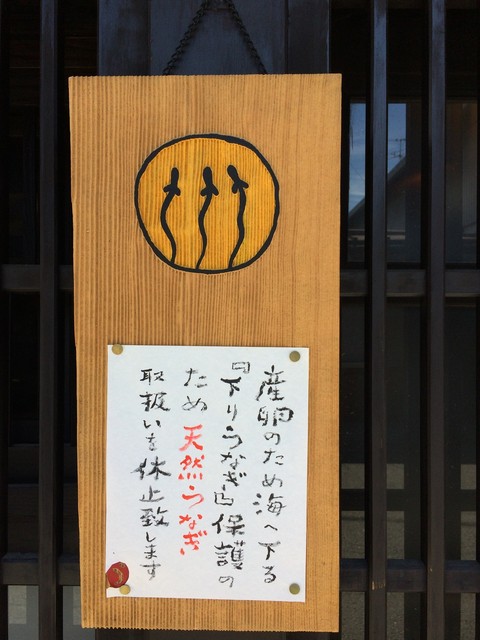 産卵のため海へ下る
『下りうなぎ』保護の
ため 天然うなぎ
取扱いを休止致します